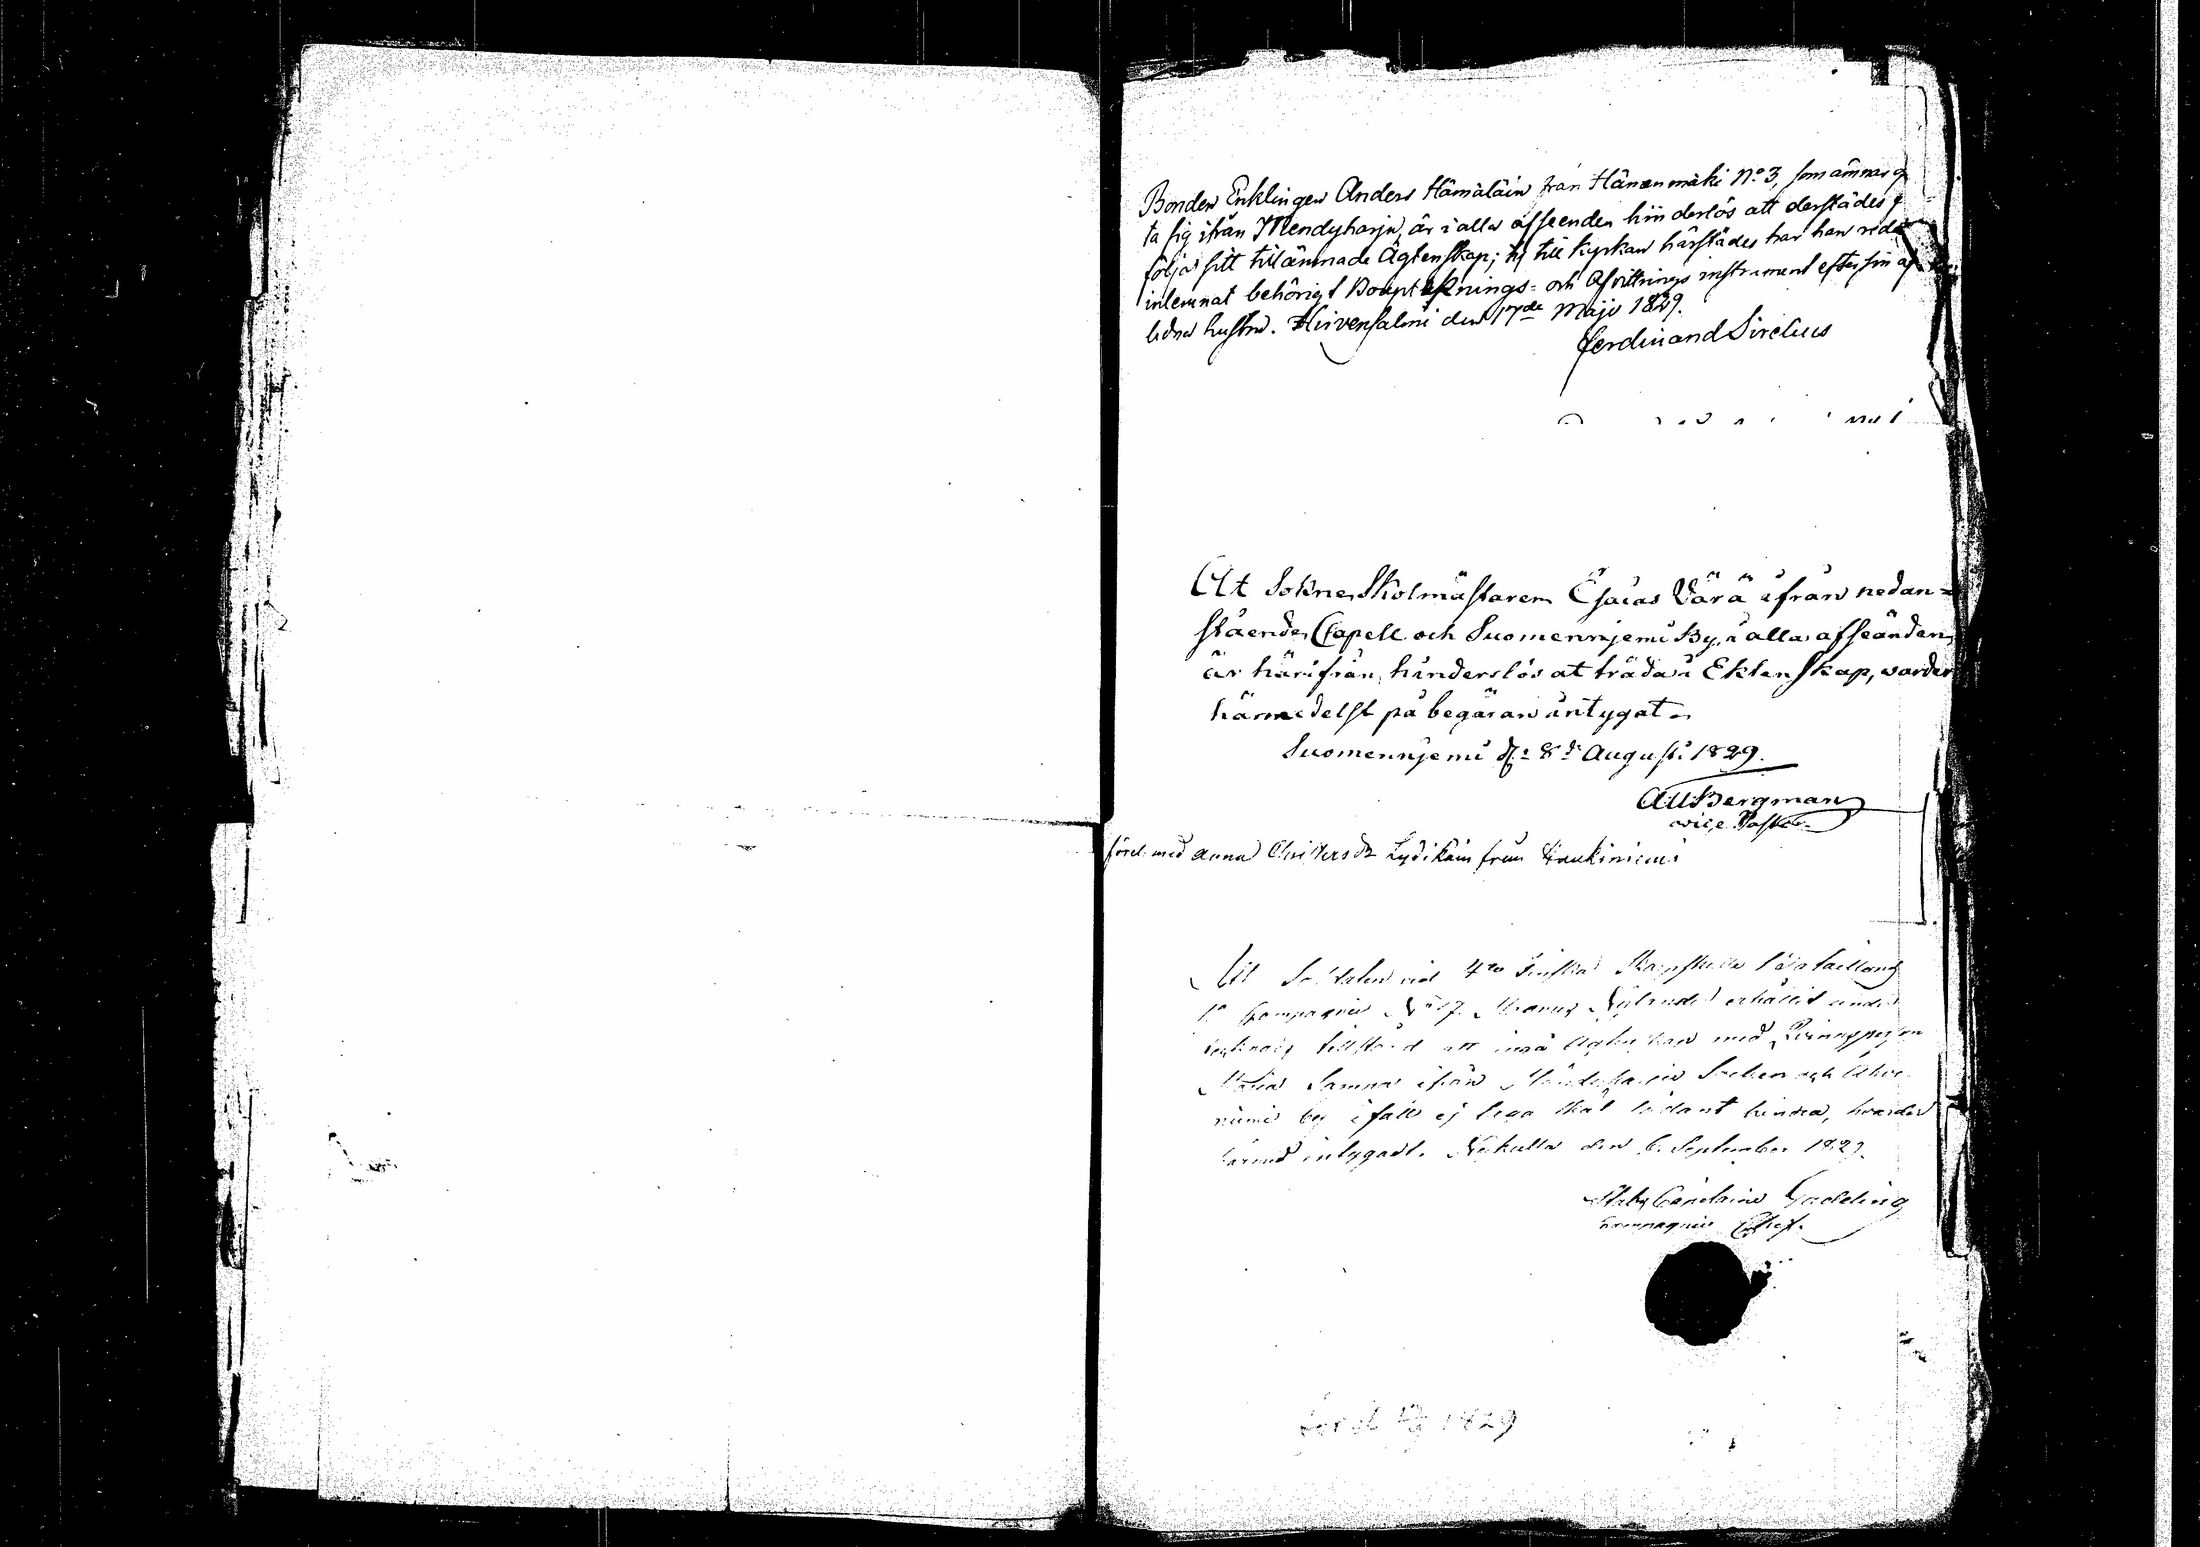 Bonden Enklingen Anders Hämäläin från Hänenmäki No 3, som ämnar g
ta sig ifrån Mendyharju, är i alla afseenden hinderlös att derstädes f
följa sitt tilämnade Ägtenskap; ty till kyrkan härstädes har han reda
inlemnat behörigt Boupteknings- och Afvittrings instrument efter sin af
lidna hustru. Hirvensalmi den 17de Maji 1829.
Ferdinand Sirelius
At Sokne Skolmästaren Esaias Värä ifrån nedan=
stående Capell och Suomenniemi By, i alla afseänden,
är härifrån hinderslös at träda i Ektenskap, warder
härmedelst på begäran intygat.
Suomenniemi d. 8de Augusti 1829.
Bergman
vice Pastor
förel. med Anna Christersdr Lydikäin från Haukiniemi
At Soldaten vid 4de Finska Skarpskytte Bataillons
Compagnie No 17. Magnus Nylund erhållit
tillstånd att ingå Ägtenskap med Qvinnspersonen
Maria ifrån Socken och
niemi by ifall ej laga skäl sådant hindra, warder
härmed intygadt. den 6 September 1829.
Stabs Capitaine
Compagnie Chef.
1829